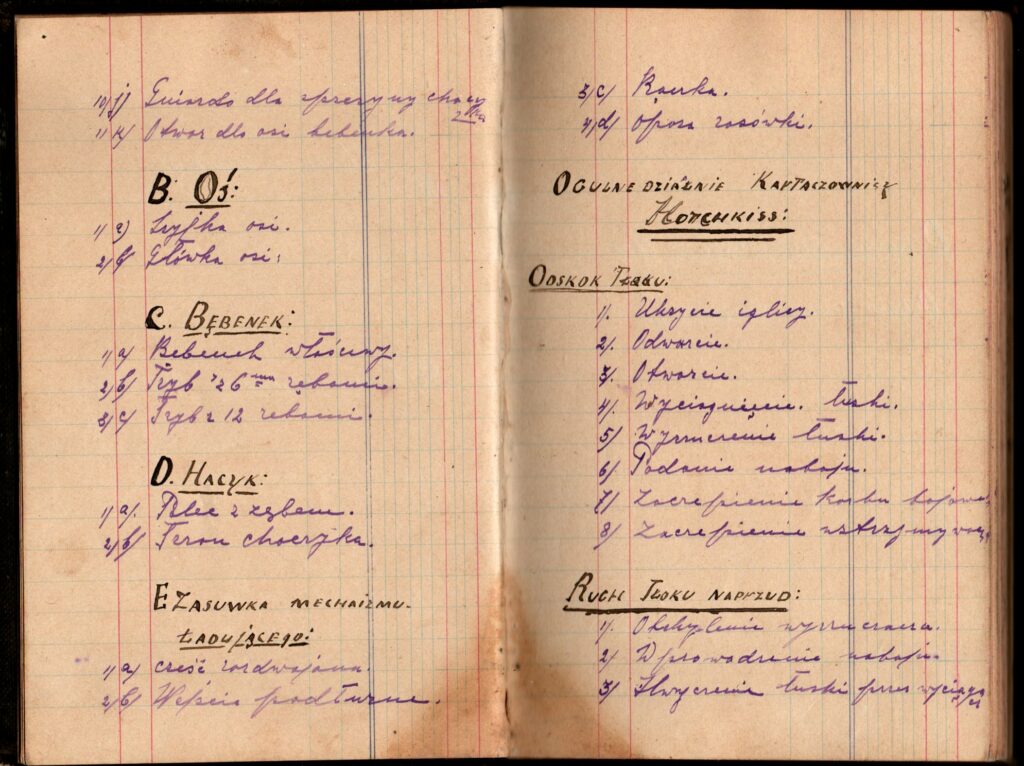 10/j) Gniazdo dla sprężyny chaczyka
11/k) Otwor dla osi bebenka.
B. Oś:
1/a) Szyjka osi.
2/b) Główka osi:
C. Bębenek:
1/a) Bebenek właściwy.
2/b) Tryb z 6 zębami.
3/c) Tryb z 12 zębami.
D. Hacyk:
1/a). Palec z zębem.
2/b) Teron chaczyka.
E Zasuwka mechaizmu
Ładującego:
1/a) cześć rozdwajana.
2/b) Wejście podłużne.
3/c) Rączka.
4/d) Opora zasówki.
Ogulne działanie Kartaczownicy
Hotchkiss:
Odskok Tłoku:
1). Ukrycie iglicy.
2). Odwarcie.
3). Otwarcie.
4). Wyciągnięcie. łuski.
5) Wyrzucenie łuski.
6). Podanie naboju.
7) Zaczepienie
8) Zaczepienie
Ruch Tłoku naprzud:
1). Odchylenie wyrzucacza.
2) Wprowadzenie naboju.
3) łuski przez wyciąg